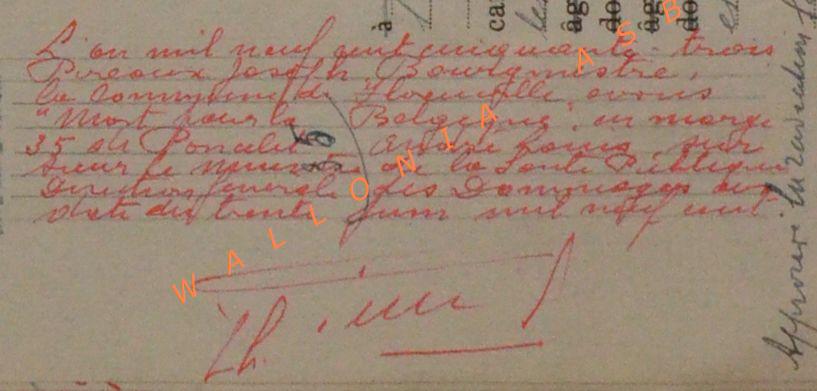 L'an mil neuf cent cinquante-trois
Pireaux Joseph, Bourgmestre,
la commune de avons
"Mort pour la Belgique, en marge
35 de Poncelet André Louis, sur
le ministre de la Santé Publique
Direction générale des Dommages en
date du trente juin mil neuf cent
WALLONIA ASB
à
car
les
âg
do
âg
do
Approuvé la